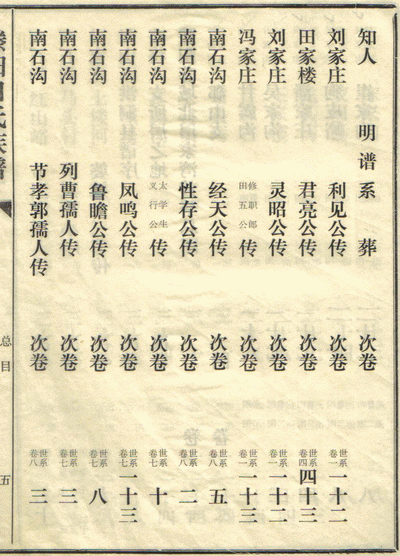 知人 明谱系 葬 次卷
刘家庄 利见公传 次卷 世系卷一 一十二
田家楼 君亮公传 次卷 世系卷四 四十三
刘家庄 灵昭公传 次卷 世系卷一 一十二
冯家庄 修职郎田五公 传 次卷 世系卷一 一十三
南石沟 经天公传 次卷 世系卷八 五
南石沟 性存公传 次卷 世系卷八 二
南石沟 太学生义行公 传 次卷 世系卷七 十
南石沟 凤鸣公传 次卷 世系卷七 一十三
南石沟 鲁瞻公传 次卷 世系卷七 八
南石沟 列曹孺人传 次卷 世系卷七 三
南石沟 节孝郭孺人传 次卷 世系卷八 三
氏族谱 总目 五